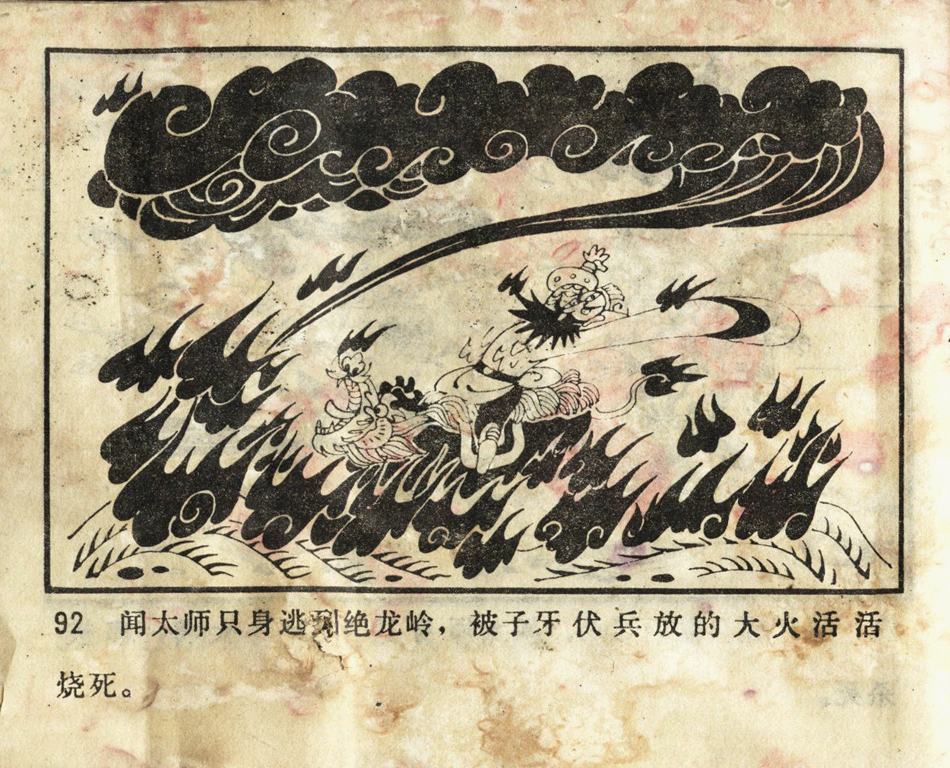 92 闻太师只身逃到绝龙岭，被子牙伏兵放的大火活活
烧死。